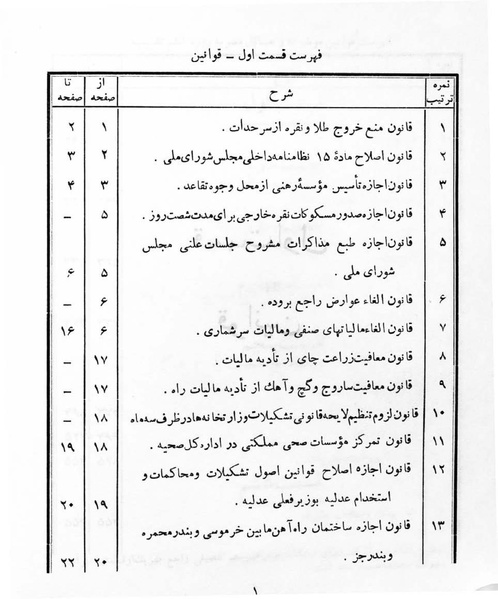 فهرست قسمت اول ــ قوانین
نمره ترتیب شرح از صفحه تا صفحه
۱ قانون منع خروج طلا و نقره از سرحدات . ۱ ۲
۲ قانون اصلاح مادهٔ ۱۵ نظامنامه داخلی مجلس شورای ملی . ۲ ۳
۳ قانون اجازه تأسیس مؤسسهٔ رهنی از محل وجوه تقاعد . ۳ ۴
۴ قانون اجازه صدور مسکوکات نقره خارجی برای مدت شصت روز . ۵ ــ
۵ قانون اجازه طبع مذاکرات مشروح جلسات علنی مجلس
شورای ملی . ۵ ۶
۶ قانون الغاء عوارض راجع بروده . ۶ ــ
۷ قانون الغاء مالیاتهای صنفی و مالیات سرشماری . ۶ ۱۶
۸ قانون معافیت زراعت چای از تأدیه مالیات . ۱۷ ــ
۹ قانون معافیت ساروج و گچ و آهك از تأدیه مالیات راه . ۱۷ ــ
۱۰ قانون لزوم تنظیم لایحه قانونی تشکیلات وزارتخانه ها در ظرف سه ماه ۱۸ ــ
۱۱ قانون تمرکز مؤسسات صحی مملکتی در اداره کل صحیه . ۱۸ ۱۹
۱۲ قانون اجازه اصلاح قوانین اصول تشکیلات و محاکمات و
استخدام عدلیه بوزیر فعلی عدلیه . ۱۹ ۲۰
۱۳ قانون اجازه ساختمان راه آهن مابین خرموسی و بندر محمره
و بندرجز . ۲۰ ۲۲
۱